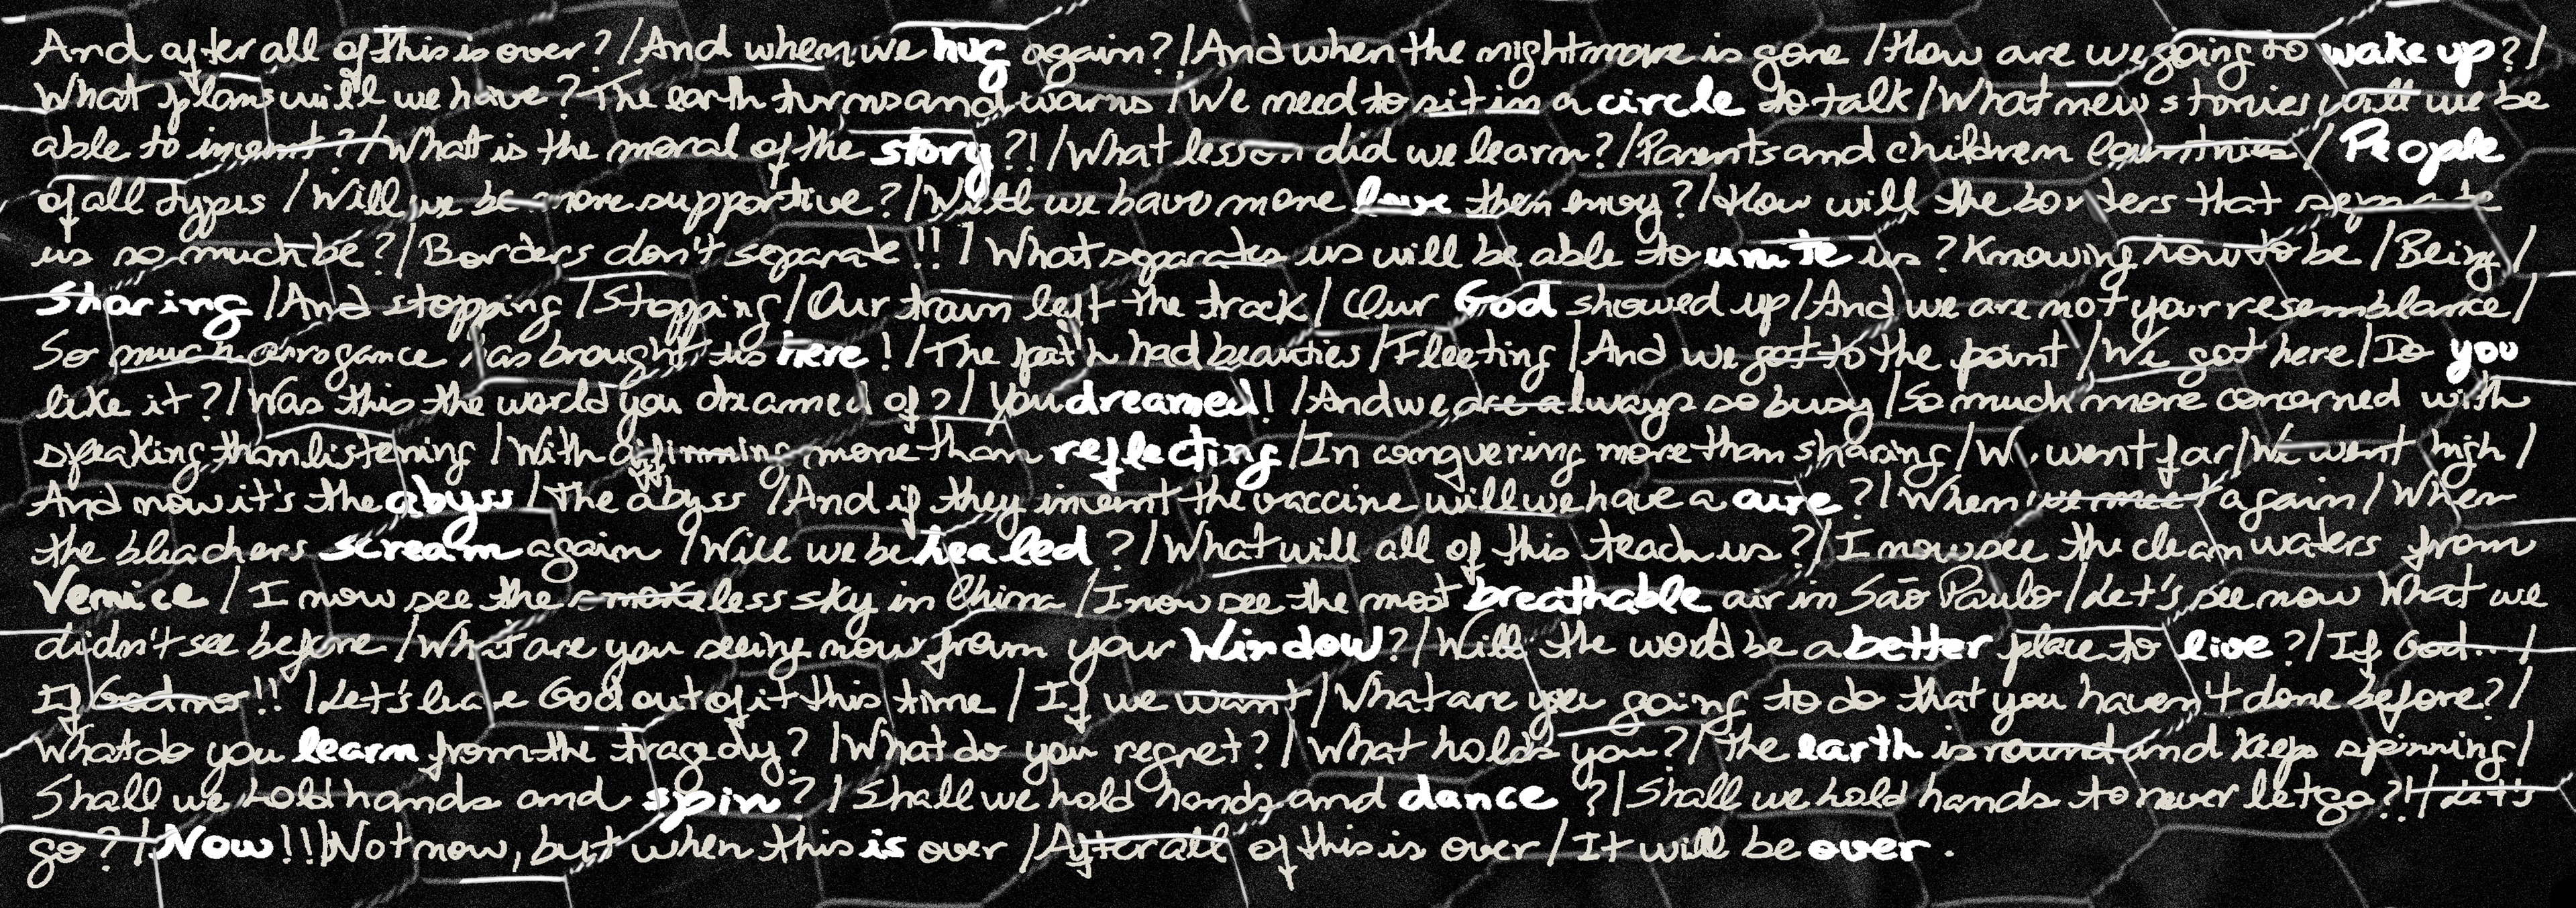 And after all of this is over?/And when we hug again?/And when the nightmare is gone /How are we going to wake up?/
What plans will we have? The earth turns and warns /We need to sit in a circle to talk/What new stories will we be
able to invent?/What is the moral of the story?!/What lesson did we learn?/Parents and children countries/People
of all types /Will we be more supportive?/Will we have more love then envy?/How will the borders that separate
us so much be?/Borders don't separate!!/What separates us will be able to unite us? Knowing how to be/Being/
Sharing/And stopping/Stopping/Our train left the track/Our God showed up/And we are not your resemblance/
So much arrogance has brought us here!/The path had beauties/Fleeting/And we got to the point/We got here/Do you
like it?/Was this the world you dreamed of?/You dreamed!/And we are always so busy/So much more concerned with
speaking than listening/With affirming more than reflecting/In conquering more than sharing/We went far/We went high/
And now it's the abyss/The abyss?/And if they invent the vaccine will we have a cure?/When we meet again/When
the bleachers scream again/Will we be healed?/What will all of this teach us?/I now see the clean waters from
Venice/I now see the smokeless sky in China/I now see the most breathable air in São Paulo/Let's see now What we
didn't see before/What are you seeing now from your Window?/Will the world be a better place to live?/If God.../
If God no!!/Let's leave God out of it this time/If we want/What are you going to do that you haven't done before?/
What do you learn from the tragedy?/What do you regret?/What holds you?/The earth is round and keeps spinning/
Shall we hold hands and spin?/Shall we hold hands and dance?/Shall we hold hands to never let go?!/Let's
go?/Now!!/Not now, but when this is over/After all of this is over/It will be over.